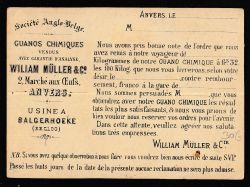 Société Anglo-Belge
GUANOS CHIMIQUES
VENDUS
AVEC GARANTIE D'ANALYSE.
WILLIAM MÜLLER & Cº
2, Marché aux Œufs.
ANVERS.
USINE A
BALGERHOEKE
(EECLOO)
ANVERS, LE
M
Nous avons pris bonne note de l'ordre que vous
avez remis à notre voyageur de
Kilogrammes de notre GUANO CHIMIQUE à Fº 32
les 100 Kilog. que nous vous livrerons, selon votre
désir le contre rembour-
sement, franco à la gare de
Nous sommes persuadés M que vous
obtiendrez avec notre GUANO CHIMIQUE les résul-
tats les plus satisfaisants, & nous vous prions
de les vouloir renouveler vos bons ordres.
Dans cette attente, veuillez agréer nos saluta-
tions très empressées.
WILLIAM MÜLLER & Cie
N.B. Si vous avez quelque observation à nous faire vous voudrez bien nous écrire de suite SVP
Passé les huit jours de la date de la présente aucune réclamation ne sera plus admise.